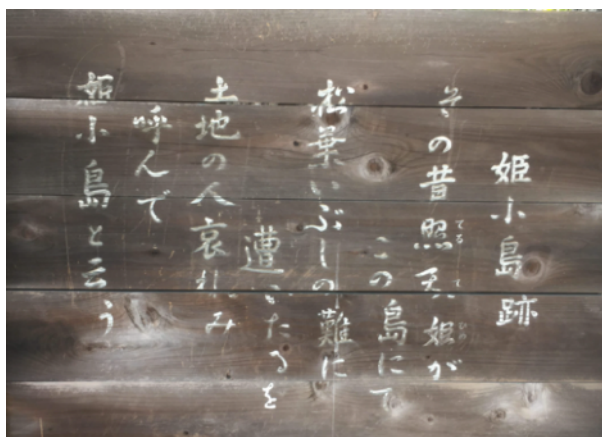 姫小島跡
その昔照天姫が
この島にて
松葉いぶしの難に
遭いたるを
土地の人哀れみ
呼んで
姫小島と云う